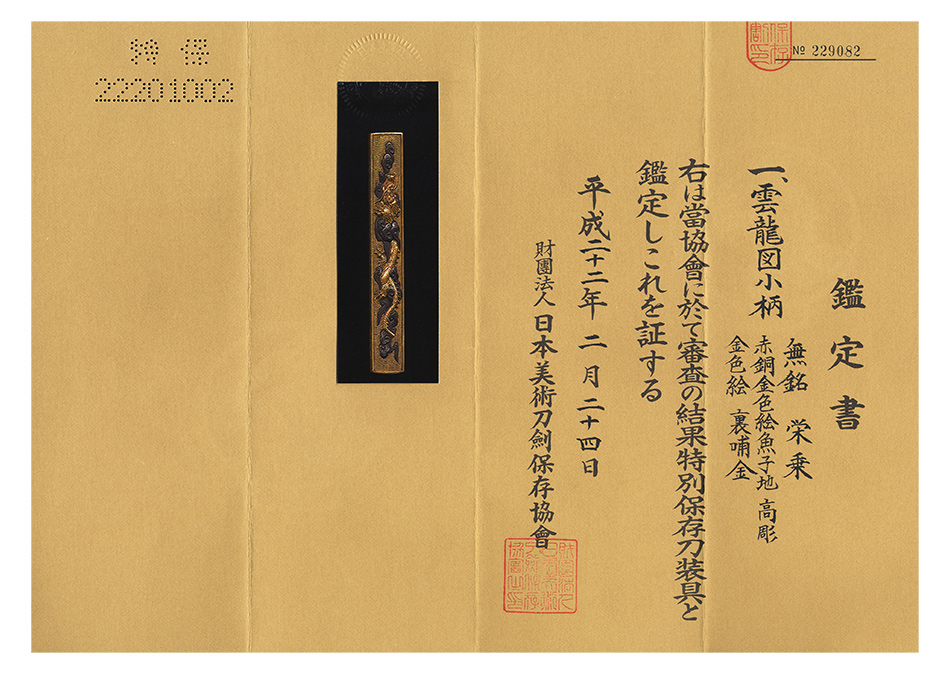 № 229082
鑑定書
一、雲龍図小柄
無銘 栄乗
赤銅金色絵魚子地 高彫
金色絵 裏哺金
右は當協會に於て審査の結果特別保存刀装具と
鑑定しこれを証する
平成二十二年 二月二十四日
財團法人 日本美術刀劍保存協會
特 保
22201002